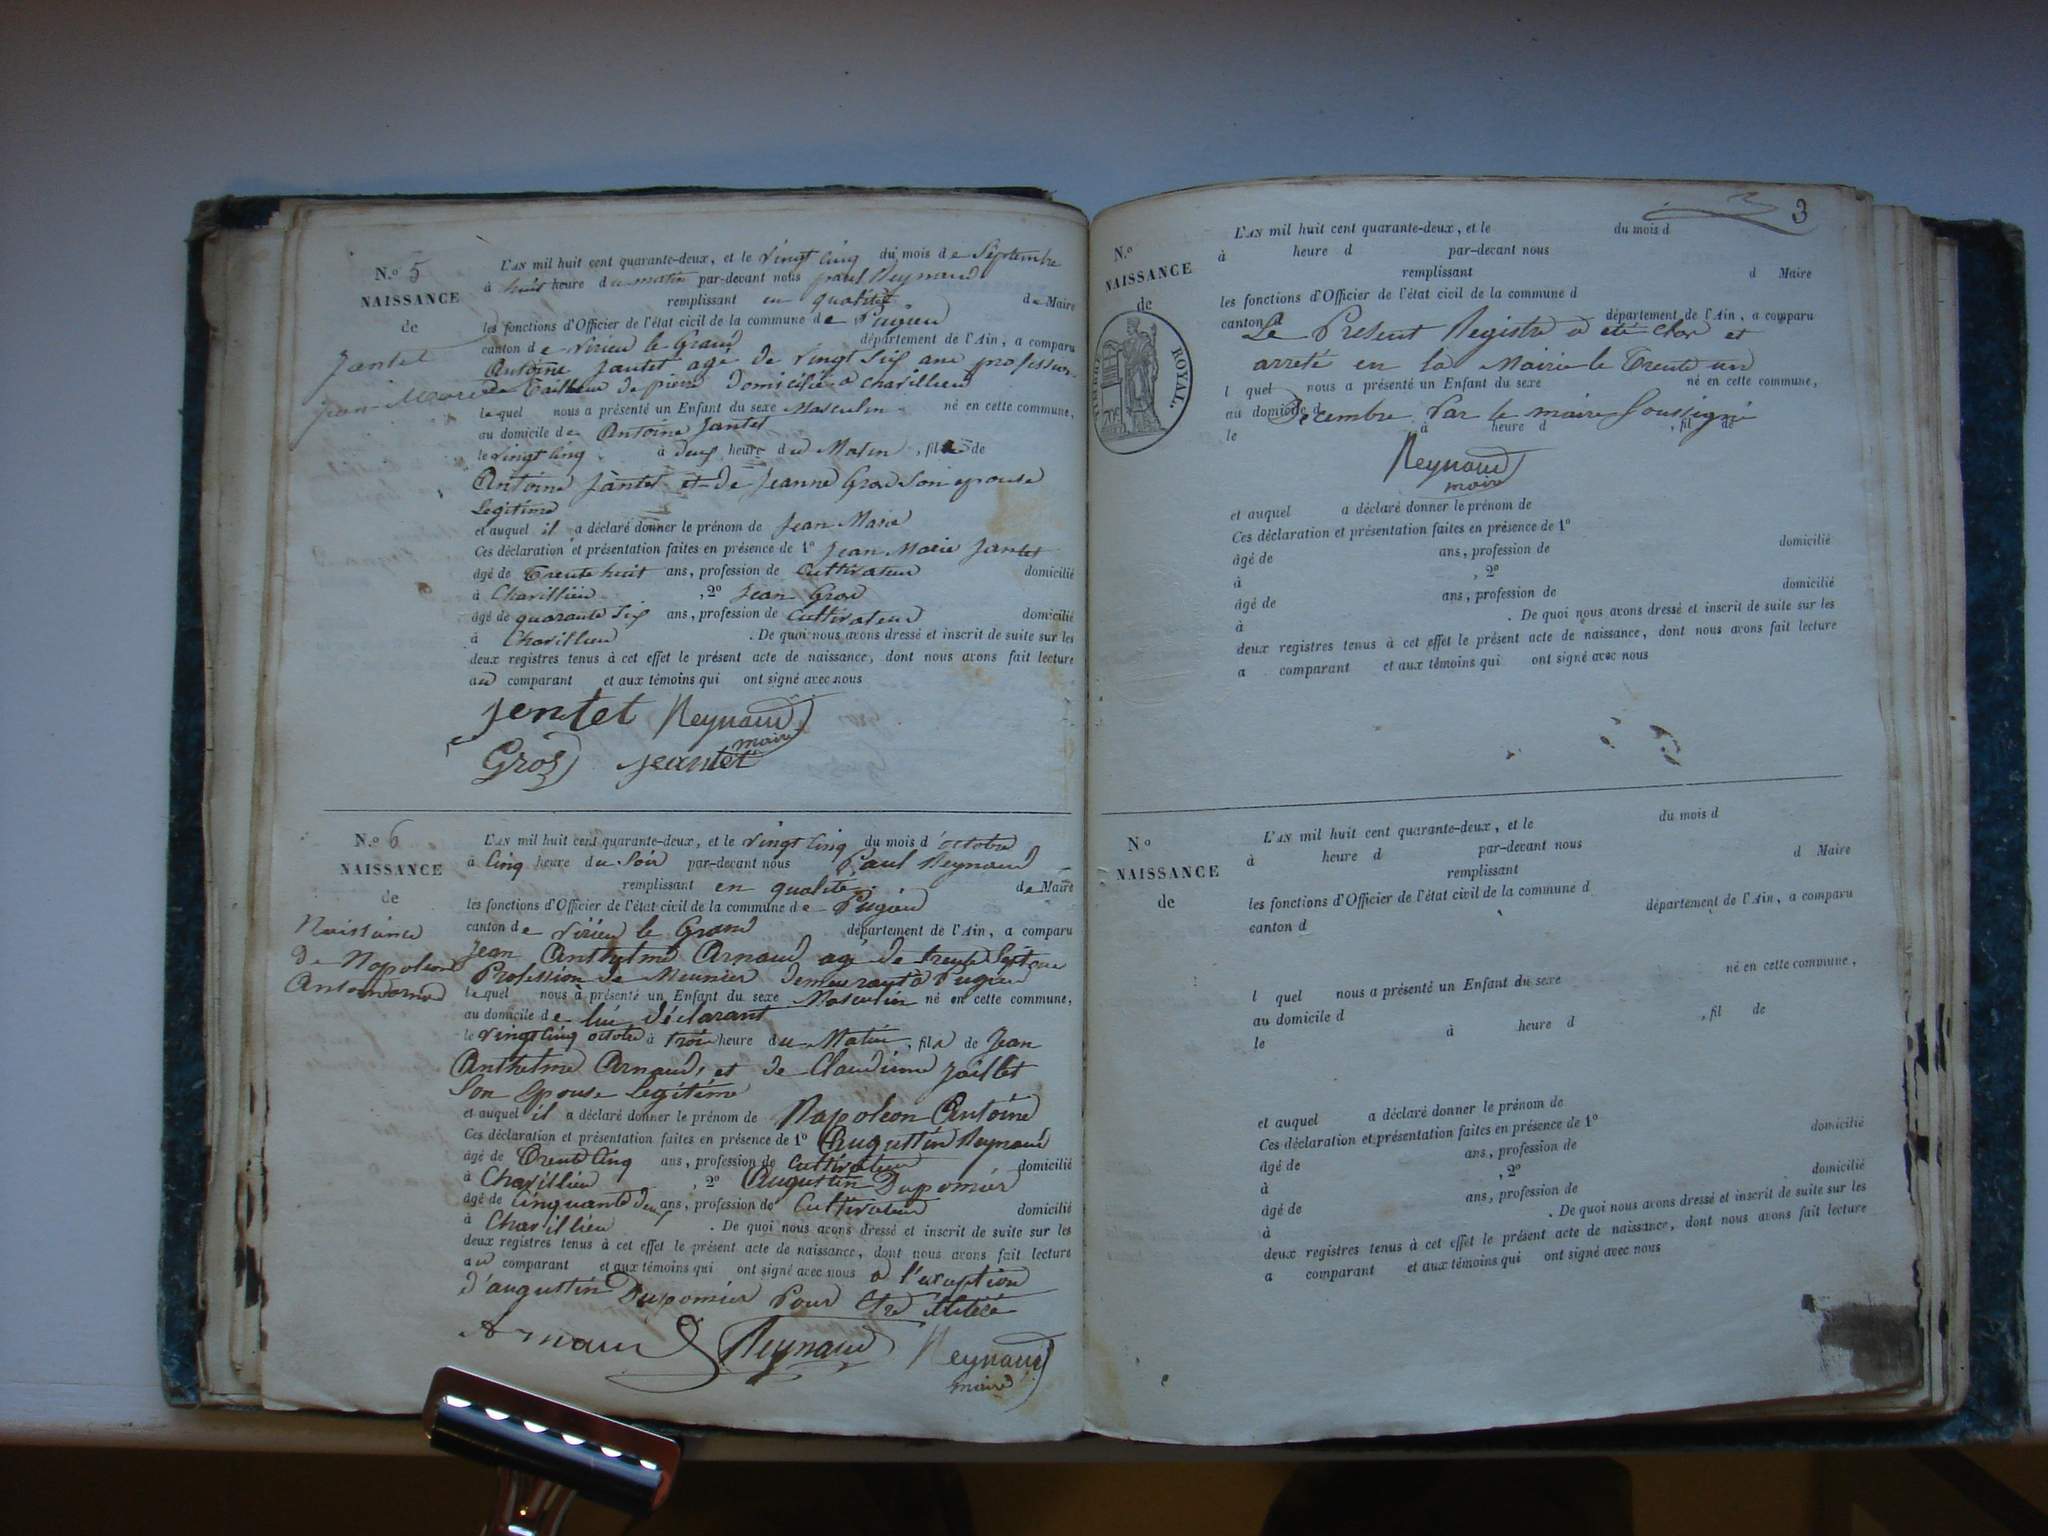 N.o 5
NAISSANCE
de
Jantet
Jean-Marie
L'AN mil huit cent quarante-deux, et le vingt cinq du mois de Septembre
à huit heure du matin par-devant nous paul Reynaud
remplissant en qualité de Maire
les fonctions d'Officier de l'état civil de la commune de Pugieu
canton de Virieu le Grand département de l'Ain, a comparu
Antoine Jantet agé de vingt six ans profession
de Tailleur de pierre domicilié a Chavillieu
lequel nous a présenté un Enfant du sexe Masculin né en cette commune,
au domicile de Antoine Jantet
le vingt cinq à deux heure du Matin, fils de
Antoine Jantet et de Jeanne Gros Son epouse
Légitime
et auquel il a déclaré donner le prénom de Jean Marie
Ces déclaration et présentation faites en présence de 1o Jean Marie Jantet
âgé de Trente huit ans, profession de Cultivateur domicilié
à Chavillieu, 2o Jean Gros
âgé de quarante six ans, profession de Cultivateur domicilié
à Chavillieu. De quoi nous avons dressé et inscrit de suite sur les
deux registres tenus à cet effet le présent acte de naissance, dont nous avons fait lecture
au comparant et aux témoins qui ont signé avec nous
jentet Reynaud
maire
Gros jeantet
N.o 6
NAISSANCE
de
Naissance
de Napoleon
Antoine
L'AN mil huit cent quarante-deux, et le vingt cinq du mois d'octobre
à Cinq heure du Soir par-devant nous Paul Reynaud
remplissant en qualité de Maire
les fonctions d'Officier de l'état civil de la commune de Pugieu
canton de Virieu le Grand département de l'Ain, a comparu
Jean Anthelme Arnaud agé de trente Sept ans
Profession de Meunier demeurant à Pugieu
lequel nous a présenté un Enfant du sexe Masculin né en cette commune,
au domicile de lui déclarant
le vingt cinq octobre à trois heure du Matin, fils de Jean
Anthelme Arnaud, et de Claudine Jaillet
Son Epouse Legitime
et auquel il a déclaré donner le prénom de Napoleon Antoine
Ces déclaration et présentation faites en présence de 1o Augustin Reynaud
âgé de Trente Cinq ans, profession de Cultivateur domicilié
à Chavillieu, 2o Augustin Dupomier
âgé de Cinquante deux ans, profession de Cultivateur domicilié
à Chavillieu. De quoi nous avons dressé et inscrit de suite sur les
deux registres tenus à cet effet le présent acte de naissance, dont nous avons fait lecture
au comparant et aux témoins qui ont signé avec nous a l'exception
d'augustin Dupomier Pour Etre illitéré
Arnaud Reynaud Reynaud
maire
3
N.o
NAISSANCE
de
TIMBRE ROYAL.
L'AN mil huit cent quarante-deux, et le du mois d
à heure d par-devant nous
remplissant d Maire
les fonctions d'Officier de l'état civil de la commune d
canton d département de l'Ain, a comparu
Le Présent Registre a eté clos et
arreté en la Mairie le Trente un
l quel nous a présenté un Enfant du sexe né en cette commune,
au domicile d
Decembre Par le maire Soussigné
le à heure d, fil de
Reynaud
maire
et auquel a déclaré donner le prénom de
Ces déclaration et présentation faites en présence de 1o
âgé de ans, profession de domicilié
à, 2o
âgé de ans, profession de domicilié
à. De quoi nous avons dressé et inscrit de suite sur les
deux registres tenus à cet effet le présent acte de naissance, dont nous avons fait lecture
a comparant et aux témoins qui ont signé avec nous
No
NAISSANCE
de
L'AN mil huit cent quarante-deux, et le du mois d
à heure d par-devant nous
remplissant d Maire
les fonctions d'Officier de l'état civil de la commune d
canton d département de l'Ain, a comparu
l quel nous a présenté un Enfant du sexe né en cette commune,
au domicile d
le à heure d, fil de
et auquel a déclaré donner le prénom de
Ces déclaration et présentation faites en présence de 1o
âgé de ans, profession de domicilié
à, 2o
âgé de ans, profession de domicilié
à. De quoi nous avons dressé et inscrit de suite sur les
deux registres tenus à cet effet le présent acte de naissance, dont nous avons fait lecture
a comparant et aux témoins qui ont signé avec nous